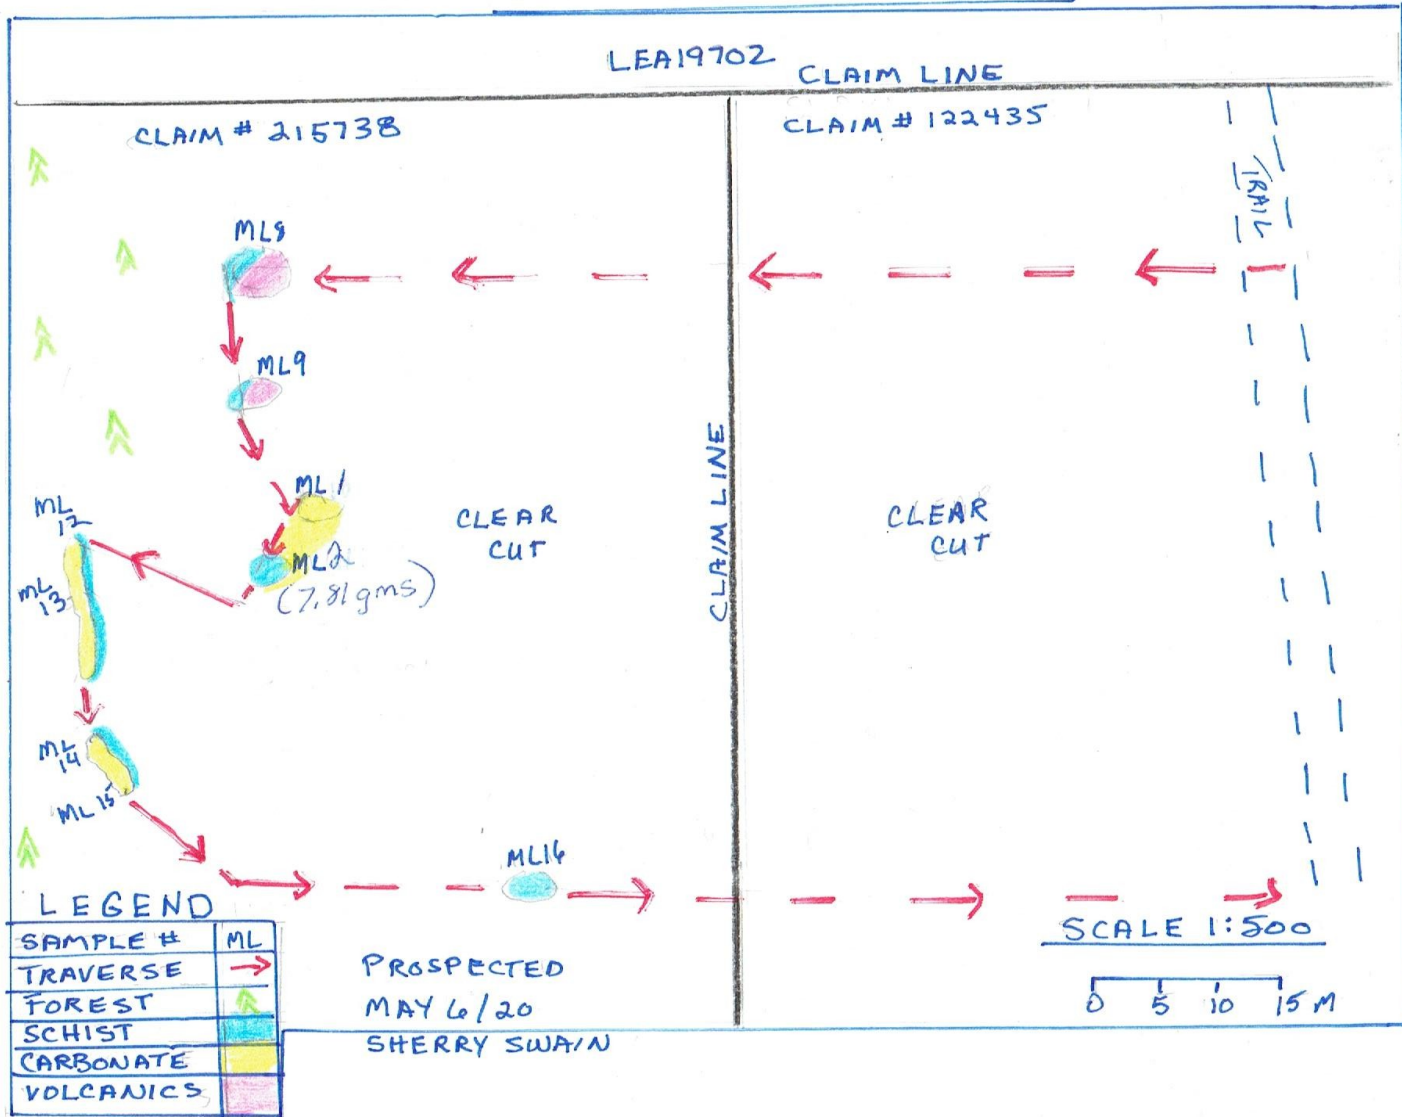 LEA19702
CLAIM LINE
CLAIM # 215738
CLAIM # 122435
TRAIL
ML8
ML9
ML1
ML2
(7.81gms)
ML
12
ML
13
ML
14
ML15
ML16
CLEAR
CUT
CLAIM LINE
CLEAR
CUT
LEGEND
SAMPLE # ML
TRAVERSE
FOREST
SCHIST
CARBONATE
VOLCANICS
PROSPECTED
MAY 6/20
SHERRY SWAIN
SCALE 1:500
0 5 10 15 M